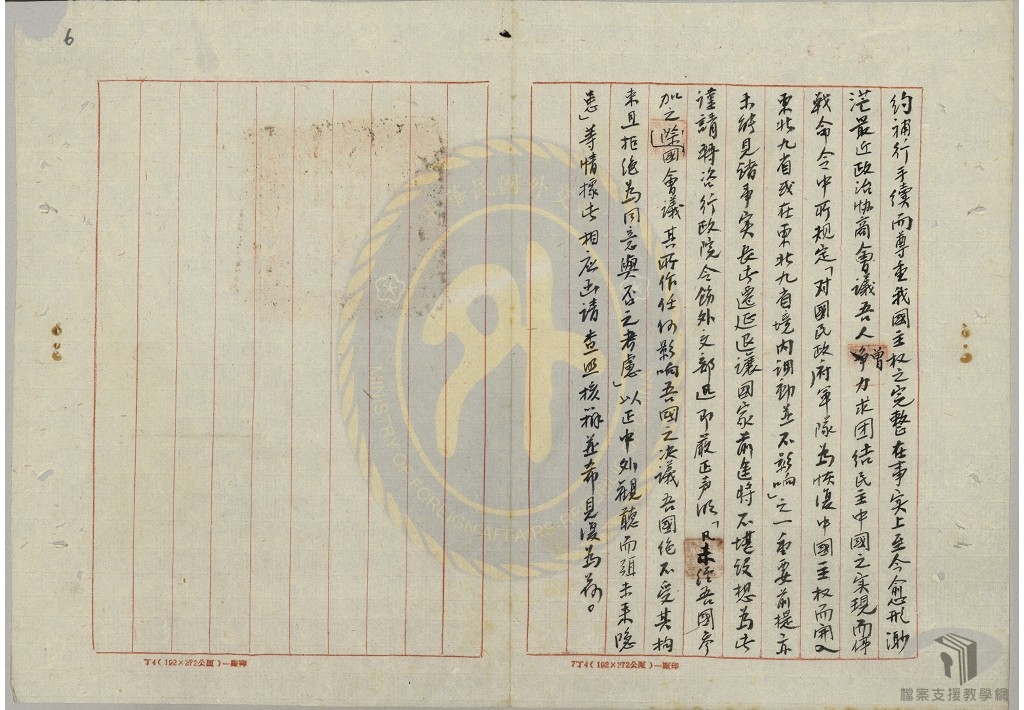 6
約補行手續而尊重我國主权之完整在事实上至今愈形渺
茫最近政治协商會議吾人曾力求团结民主中國之实現而停
戰命令中所规定「对國民政府軍隊為恢復中國主权而開入
東北九省或在東北九省境內調動並不影响」之一重要前提亦
未能見諸事实長此遷延退讓國家前途將不堪设想為此
謹請轉咨行政院令飭外交部迅即嚴正声明「凡未经吾國參
加之際國會議其所作任何影响吾國之决議吾國绝不受其拘
束且拒绝為同意與否之考慮」以正中外觀聽而弭未来隐
患」等情據此相应函請查照核辦並希見復為荷。
丁4(192×272公厘)一厰印
7丁4(192×272公厘)一厰印
中華民國外交部
MINISTRY OF FOREIGN AFFAIRS
檔案支援教學網